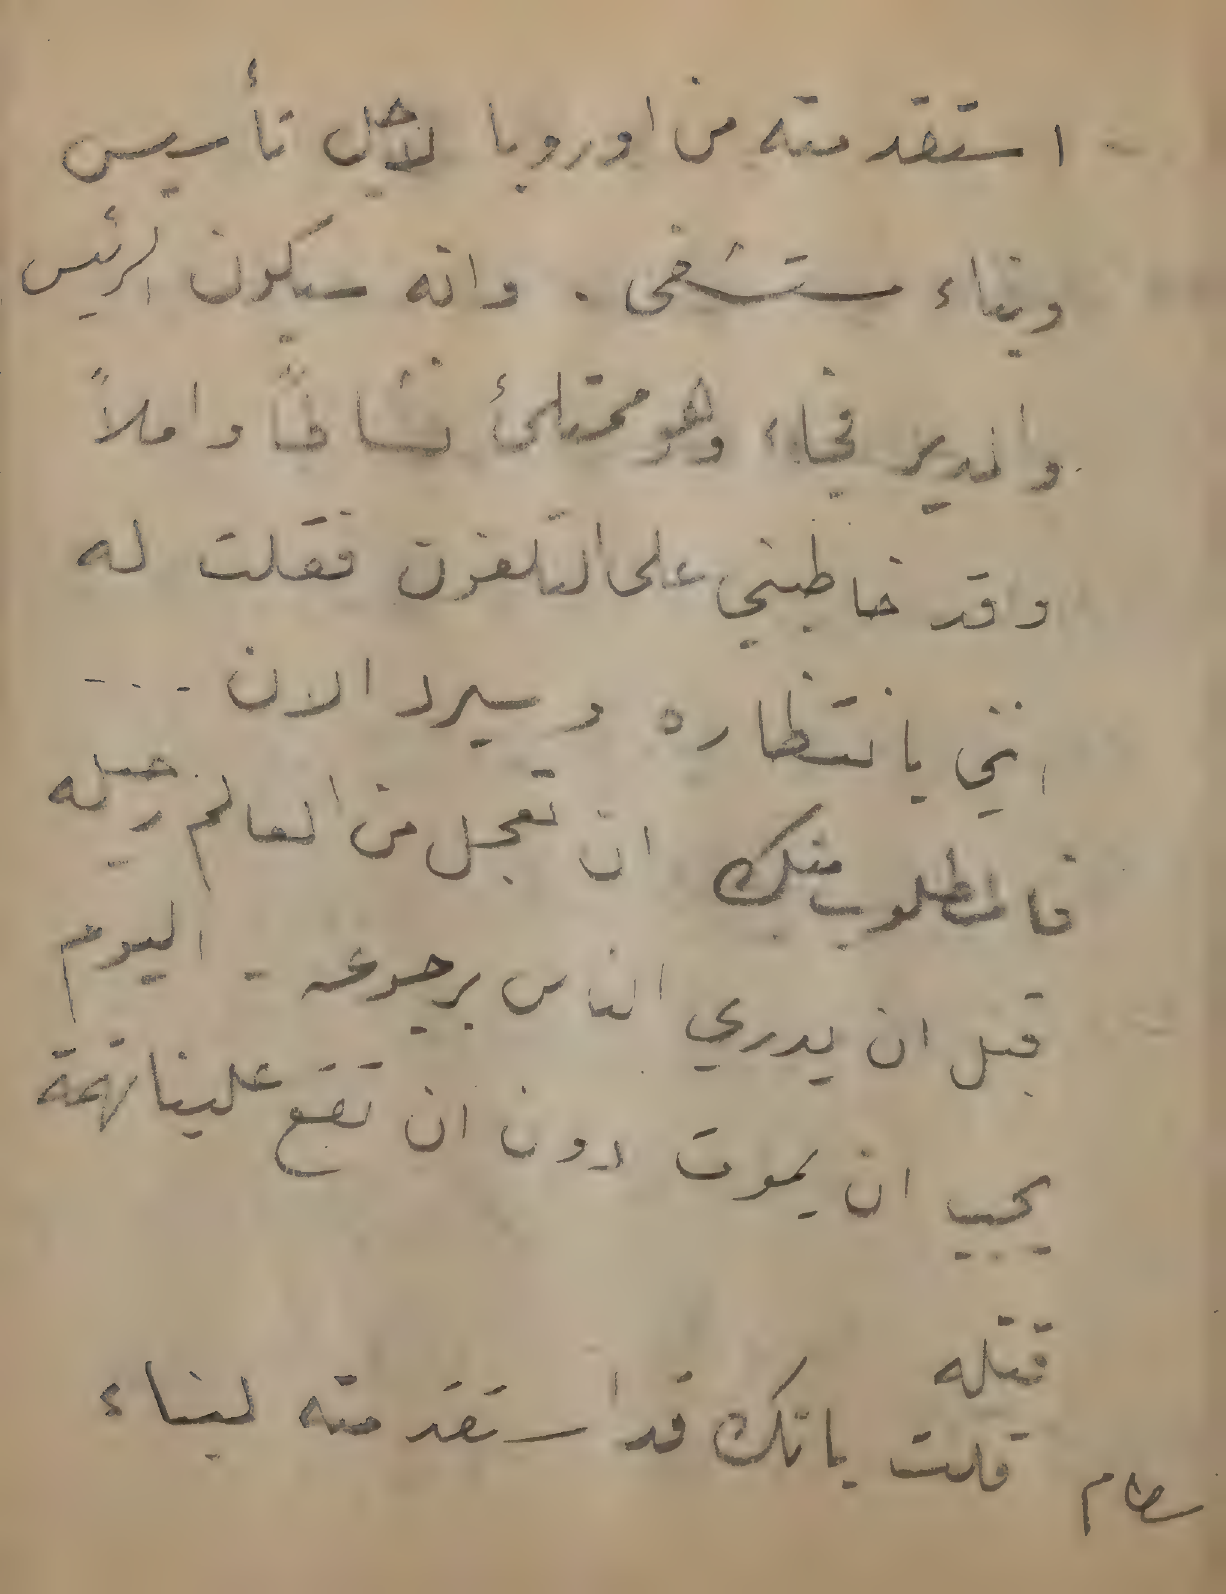 - استقدمته من اوروبا لاجل تأسيس
وبناء مستشفى . وانه سيكون الرئيس
والمدير فجاء وهو ممتلئ نشاطاً واملاً
وقد خاطبني على التلفون فقلت له
انني بانتظاره وسيرد الان ...
فالمطلوب منك ان تعجل من العالم رحيله
قبل ان يدري الناس برجوعه - اليوم
يجب ان يموت دون ان تقع علينا تهمة
قتله
سطام قلت بانك قد استقدمته لبناء